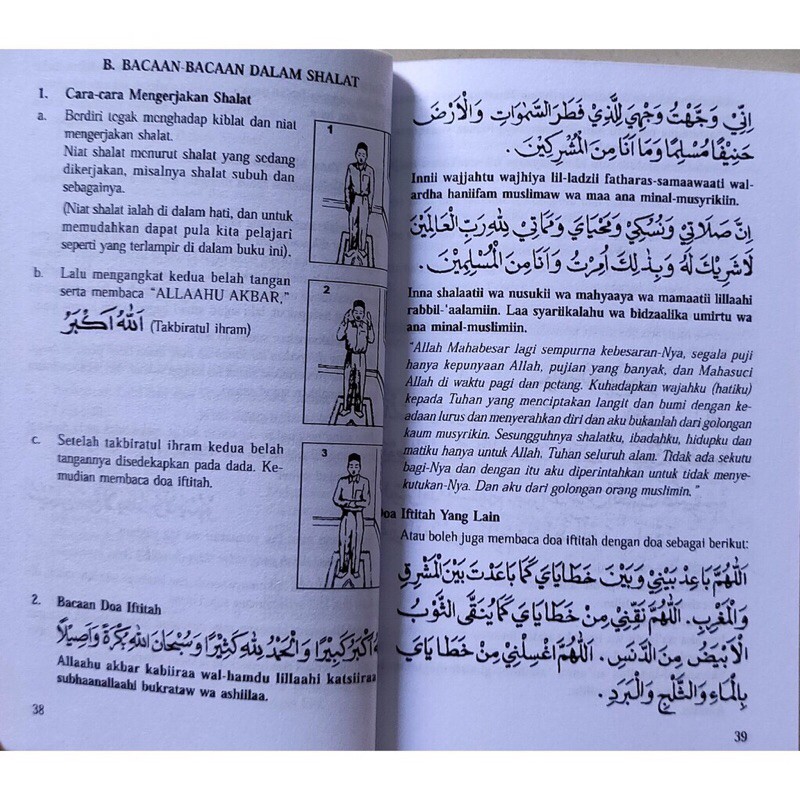 B. BACAAN-BACAAN DALAM SHALAT
1. Cara-cara Mengerjakan Shalat
a. Berdiri tegak menghadap kiblat dan niat
mengerjakan shalat.
Niat shalat menurut shalat yang sedang
dikerjakan, misalnya shalat subuh dan
sebagainya.
(Niat shalat ialah di dalam hati, dan untuk
memudahkan dapat pula kita pelajari
seperti yang terlampir di dalam buku ini).
1
b. Lalu mengangkat kedua belah tangan
serta membaca “ALLAAHU AKBAR,”
اَللّٰهُ اَكْبَرُ (Takbiratul ihram)
2
c. Setelah takbiratul ihram kedua belah
tangannya disedekapkan pada dada. Ke-
mudian membaca doa iftitah.
3
2. Bacaan Doa Iftitah
اَكْبَرُ كَبِيْرًا وَالْحَمْدُ لِلّٰهِ كَثِيْرًا وَسُبْحَانَ اللّٰهِ بُكْرَةً وَاَصِيْلًا
Allaahu akbar kabiiraa wal-hamdu lillaahi katsiiraa
subhaanallaahi bukrataw wa ashiilaa.
38
اِنِّيْ وَجَّهْتُ وَجْهِيَ لِلَّذِيْ فَطَرَ السَّمٰوَاتِ وَالْاَرْضَ
حَنِيْفًا مُسْلِمًا وَمَا اَنَا مِنَ الْمُشْرِكِيْنَ .
Innii wajjahtu wajhiya lil-ladzii fatharas-samaawaati wal-
ardha haniifam muslimaw wa maa ana minal-musyrikiin.
اِنَّ صَلَاتِيْ وَنُسُكِيْ وَمَحْيَايَ وَمَمَاتِيْ لِلّٰهِ رَبِّ الْعَالَمِيْنَ
لَا شَرِيْكَ لَهُ وَبِذٰلِكَ اُمِرْتُ وَاَنَا مِنَ الْمُسْلِمِيْنَ .
Inna shalaatii wa nusukii wa mahyaaya wa mamaatii lillaahi
rabbil-'aalamiin. Laa syariikalahu wa bidzaalika umirtu wa
ana minal-muslimiin.
“Allah Mahabesar lagi sempurna kebesaran-Nya, segala puji
hanya kepunyaan Allah, pujian yang banyak, dan Mahasuci
Allah di waktu pagi dan petang. Kuhadapkan wajahku (hatiku)
kepada Tuhan yang menciptakan langit dan bumi dengan ke-
adaan lurus dan menyerahkan diri dan aku bukanlah dari golongan
kaum musyrikin. Sesungguhnya shalatku, ibadahku, hidupku dan
matiku hanya untuk Allah. Tuhan seluruh alam. Tidak ada sekutu
bagi-Nya dan dengan itu aku diperintahkan untuk tidak menye-
kutukan-Nya. Dan aku dari golongan orang muslimin.”
Doa Iftitah Yang Lain
Atau boleh juga membaca doa iftitah dengan doa sebagai berikut:
اَللّٰهُمَّ بَاعِدْ بَيْنِيْ وَبَيْنَ خَطَايَايَ كَمَا بَاعَدْتَ بَيْنَ الْمَشْرِقِ
وَالْمَغْرِبِ. اَللّٰهُمَّ نَقِّنِيْ مِنْ خَطَايَايَ كَمَا يُنَقَّى الثَّوْبُ
الْاَبْيَضُ مِنَ الدَّنَسِ. اَللّٰهُمَّ اغْسِلْنِيْ مِنْ خَطَايَايَ
بِالْمَاءِ وَالثَّلْجِ وَالْبَرَدِ .
39